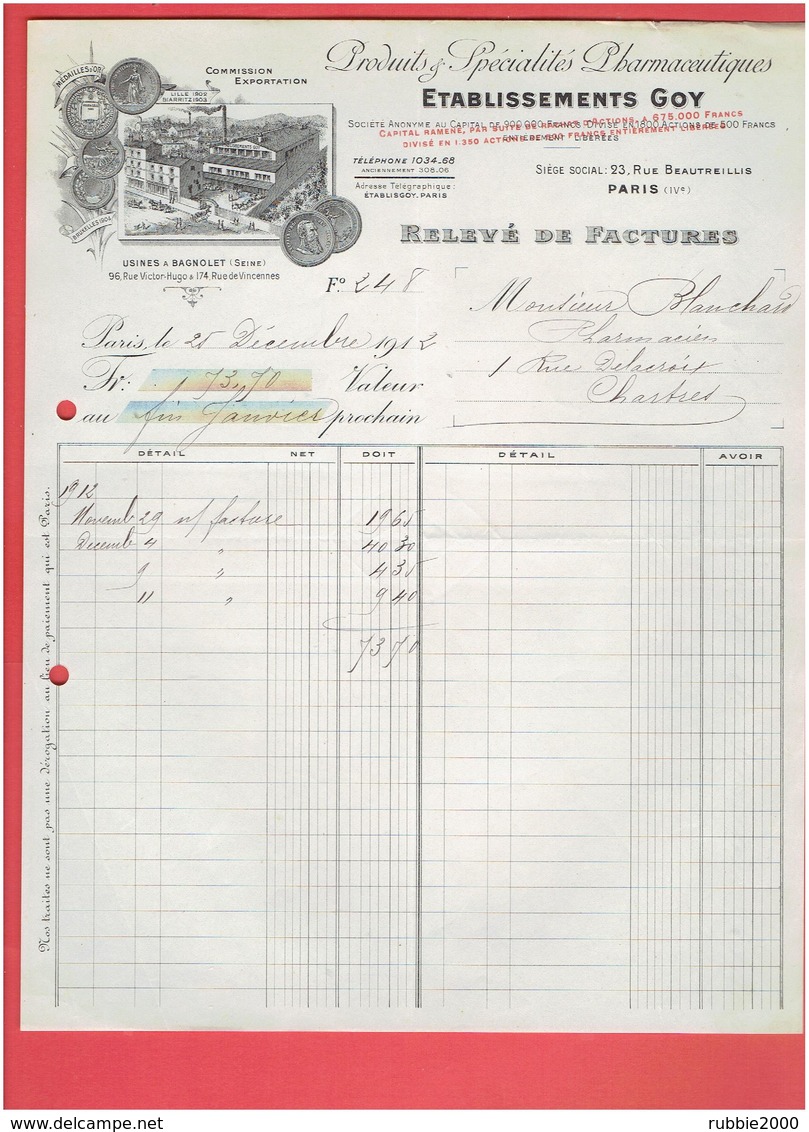 Produits & Spécialités Pharmaceutiques
ETABLISSEMENTS GOY
SOCIÉTÉ ANONYME AU CAPITAL DE 900.000 FRANCS DIVISÉ EN 1800 ACTIONS DE 500 FRANCS
ENTIÈREMENT LIBÉRÉES
CAPITAL RAMENÉ, PAR SUITE DE RACHAT D'ACTIONS, A 675.000 FRANCS
DIVISÉ EN 1.350 ACTIONS DE 500 FRANCS ENTIEREMENT LIBÉRÉES
COMMISSION
EXPORTATION
MÉDAILLES D'OR
LILLE 1902
BIARRITZ 1903
BRUXELLES 1904
TÉLÉPHONE 1034.68
ANCIENNEMENT 308.06
Adresse Télégraphique:
ÉTABLISGOY. PARIS
SIÈGE SOCIAL: 23, RUE BEAUTREILLIS
PARIS (IVe)
RELEVÉ DE FACTURES
USINES A BAGNOLET (SEINE)
96, Rue Victor-Hugo & 174, Rue de Vincennes
Fo. 248
Monsieur Blanchard
Pharmacien
1 Rue Delacroix
Chartres
Paris, le 25 Décembre 1912
Fr: 73,70 Valeur
au fin Janvier prochain
DÉTAIL NET DOIT DÉTAIL AVOIR
1912
Novemb 29 n/ facture 19 65
Decemb 4 " 40 30
9 " 4 35
11 " 9 40
73 70
Nos traites ne sont pas une dérogation au lieu de paiement qui est Paris.
rubbie2000